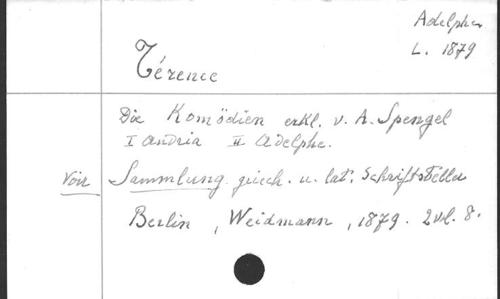 Adelphe
L. 1879
Térence
Die Komödien erkl. v. A. Spengel
I Andria II Adelphe.
Voir Sammlung griech. u. lat. Schriftsteller
Berlin, Weidmann, 1879. 2 vol. 8.